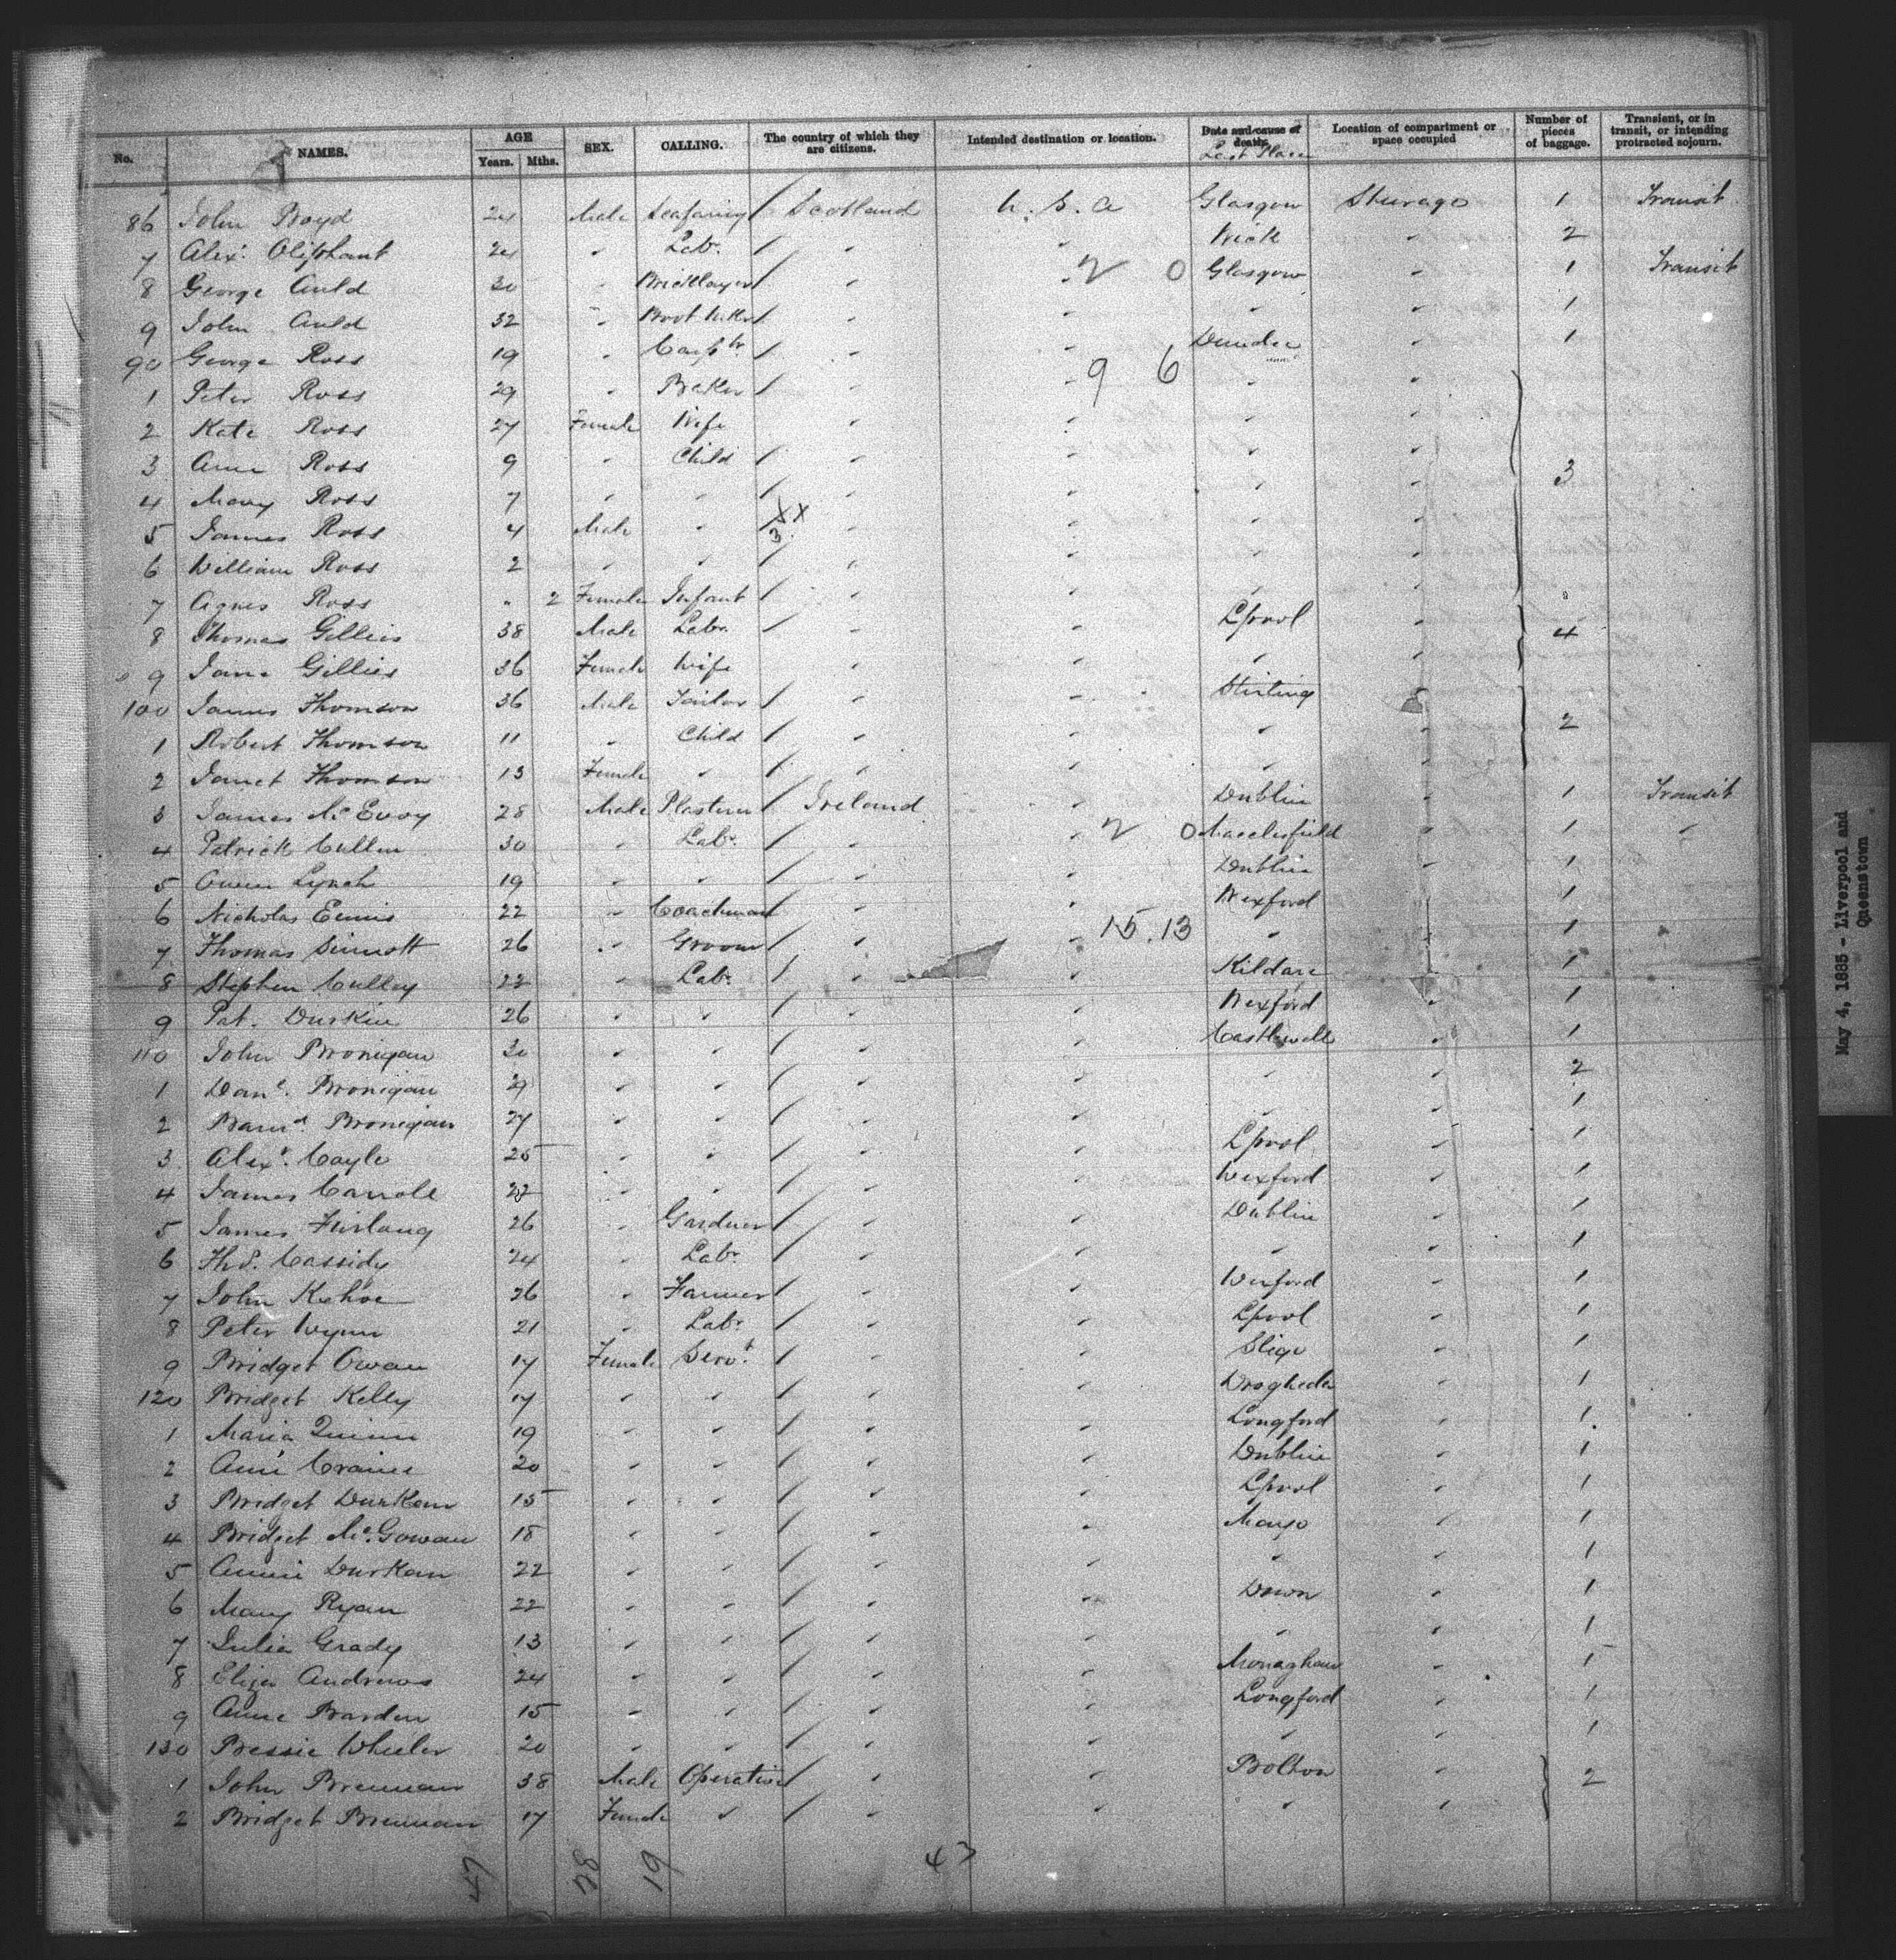 No. NAMES. AGE Years. Mths. SEX. CALLING. The country of which they are citizens. Intended destination or location. Date and cause of death. Last Place Location of compartment or space occupied Number of pieces of baggage. Transient, or in transit, or intending protracted sojourn.
86 John Boyd 24 Male Seafaring / Scotland U. S. A Glasgow Steerage 1 Transit
7 Alexr. Oliphant 24 " Labr. / " " Wick " 2
8 George Auld 30 " Bricklayer / " " 2 0 Glasgow " 1 Transit
9 John Auld 32 " Boot Mkr / " " " " 1
90 George Ross 19 " Carptr. / " " Dundee " 1
1 Peter Ross 29 " Baker / " " 9 6 " "
2 Kate Ross 27 Female Wife " " " "
3 Ann Ross 9 " Child / " " " " 3
4 Mary Ross 7 " " / " " " "
5 James Ross 4 Male " / XX 3 " " " "
6 William Ross 2 " " / " " " "
7 Agnes Ross " 2 Female Infant / " " " "
8 Thomas Gillies 38 Male Labr. / " " Lpool " 4
9 Jane Gillies 36 Female Wife " " " "
100 James Thomson 36 Male Tailor / " " Stirling " 2
1 Robert Thomson 11 " Child / " " " "
2 Janet Thomson 13 Female " / " " " "
3 James McEvoy 28 Male Plasterer / Ireland " Dublin " 1 Transit
4 Patrick Cullen 30 " Labr. / " " 2 0 Macclesfield " 1 "
5 Owen Lynch 19 " " / " " Dublin " 1
6 Nicholas Ennis 22 " Coachman / " " Wexford " 1
7 Thomas Sinnott 26 " Groom / " " 15.13 " " 1
8 Stephen Culley 22 " Labr. / " " Kildare " 1
9 Pat. Durkin 26 " " / " " Wexford " 1
110 John Bronigan 30 " " / " " Castlewell " 1
1 Danl. Bronigan 29 " " / " " " " 2
2 Barnd. Bronigan 27 " " / " " " " 1
3 Alexr. Coyle 25 " " / " " Lpool " 1
4 James Carroll 22 " " / " " Wexford " 1
5 James Furlong 26 " Gardner / " " Dublin " 1
6 Thos. Cassidy 24 " Labr. / " " " " 1
7 John Kehoe 26 " Farmer / " " Wexford " 1
8 Peter Wynn 21 " Labr. / " " Lpool " 1
9 Bridget Owan 17 Female Servt. / " " Sligo " 1
120 Bridget Kelly 17 " " / " " Drogheda " 1
1 Maria Quinn 19 " " / " " Longford " 1
2 Ann 20 " " / " " Dublin " 1
3 Bridget Durkan 15 " " / " " Lpool " 1
4 Bridget McGowan 18 " " / " " Mayo " 1
5 Annie Durkan 22 " " / " " " " 1
6 Mary Ryan 22 " " / " " Down " 1
7 Julia Grady 13 " " / " " " " 1
8 Eliza Andrews 24 " " / " " Monaghan " 1
9 Anne Barden 15 " " / " " Longford " 1
130 Bessie Wheeler 20 " " / " " " " 1
1 John Brennan 38 Male Operative / " " Bolton " 2
2 Bridget Brennan 17 Female " / " " " "
47 28 19 43
May 4, 1885 - Liverpool and Queenstown